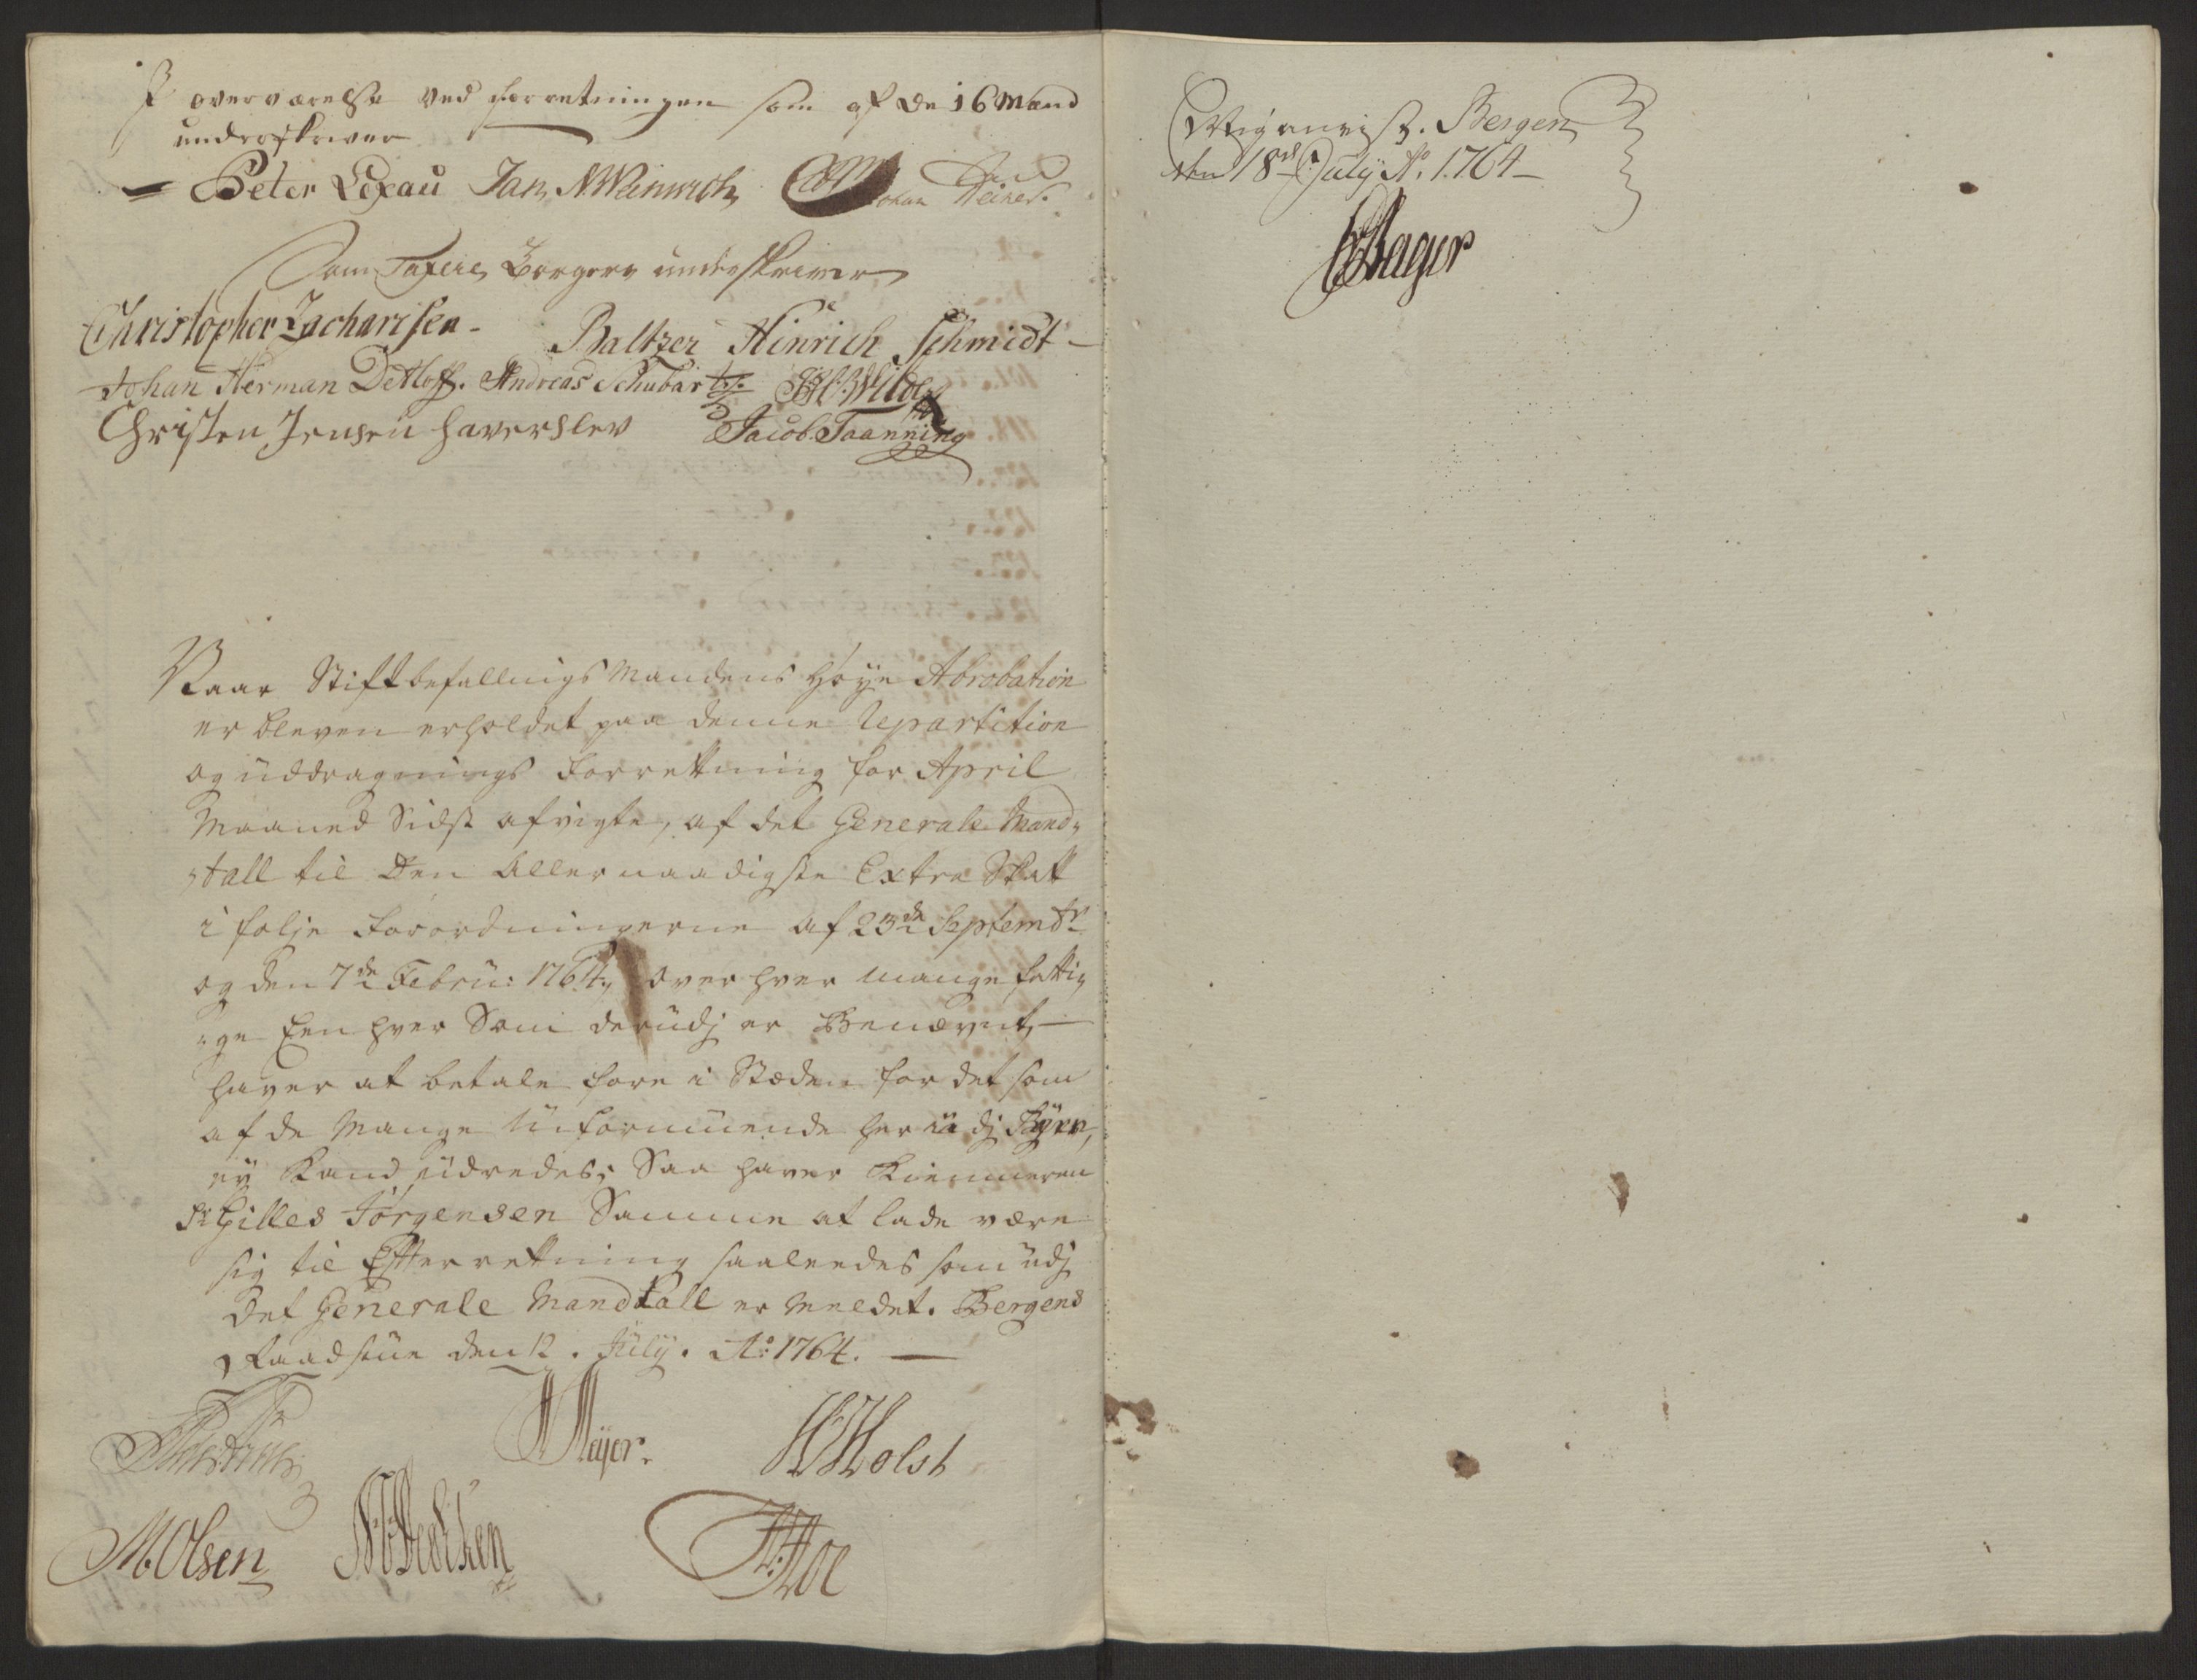 I overværelse ved forretningen som af de 16 Mænd
underskriver
Peter Lexau Jan N Weinwich Johan Reiners.
Som Taxere Borgere underskriver
Christopher Zacharisen - Baltzer Hinrich Schmidt -
Johan Herman Detloff. Andreas Schubart Wilde
Christen Jensen Haverslev Jacob Taanning
Naar Stiftbefallnigs Mandens Høye Abrobation
er bleven erholdet paa denne Repartition
og uddragnings Forrettning for April
Maaned Sidst afvigte, af det Generale Mand,,
,,tall til Den Allernaadigste Extra Skatt
i følje Forordningerne af 23de Septembr
og den 7de Febru: 1764, over hvor mange fatti,,
,,ge Een hver Som derudj er Benævnt,
haver at betale fore i Stæden for det som
af de Mange Uformuende her udj Byen,
ey Kand udredes; Saa haver Kiemneren
Sr Gilles Jørgensen Samme at lade være
sig til Efterrettning saaleedes som udj
Det Generale Mandtall er Meldet. Bergens
Raadstue den 12. July. Ao: 1764. —
Meyer. Holst
M. Olsen
Bergen
den 18de July Ao. 1764 -
Hagor